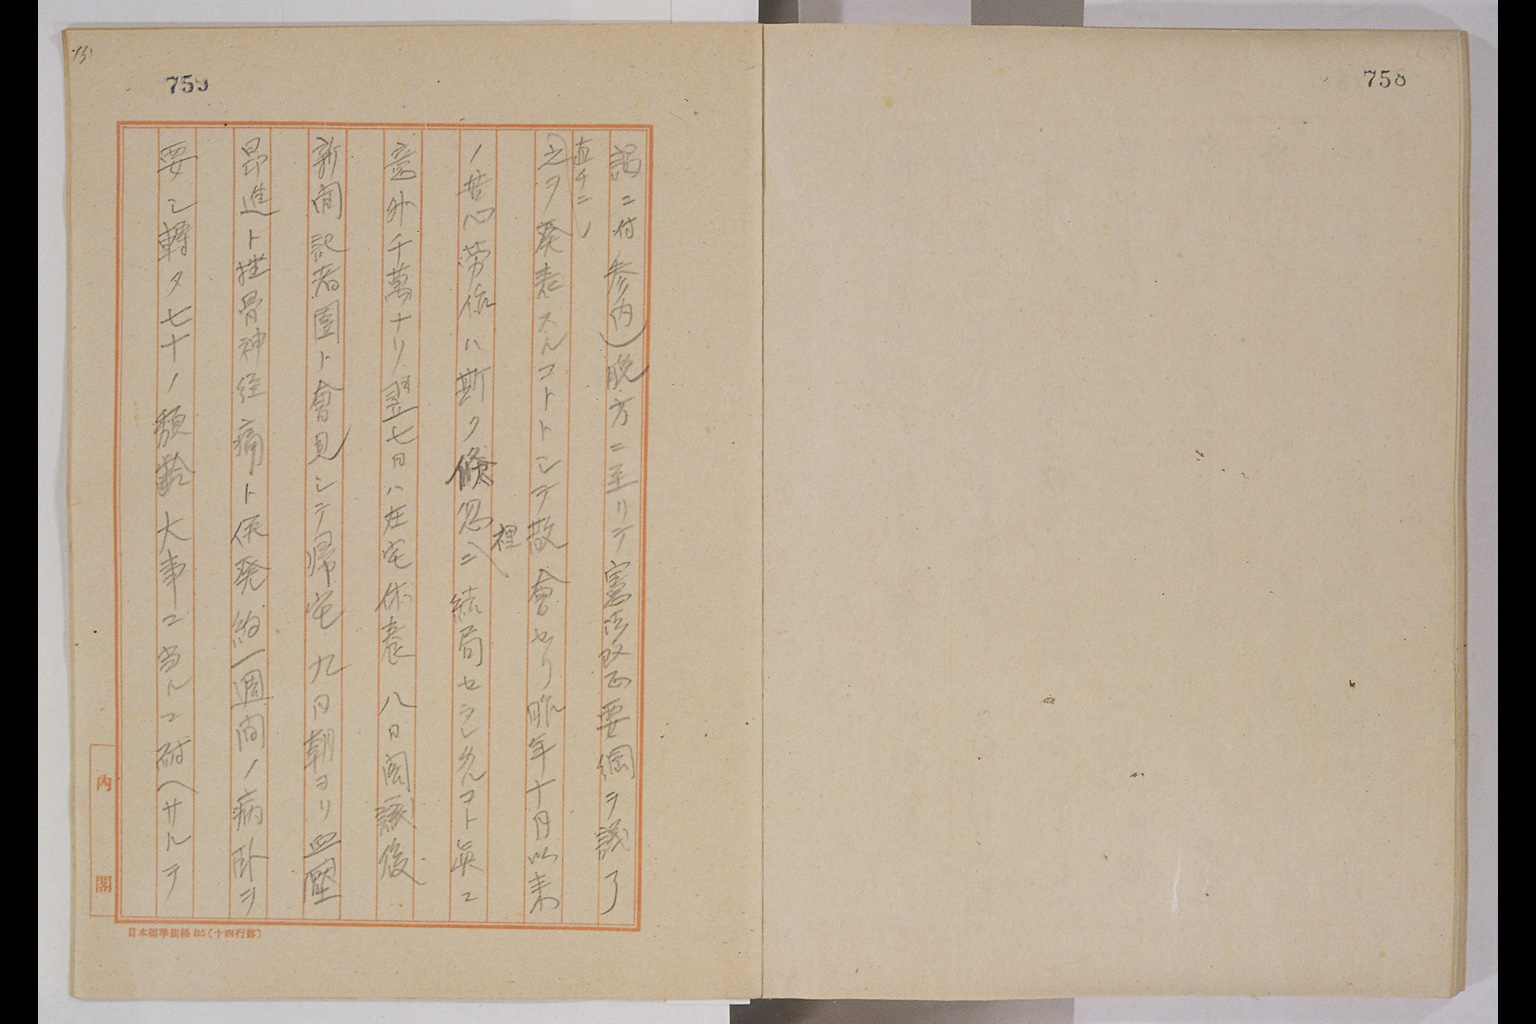 758
759
謁ニ付参内)晩方ニ至リテ憲法改正要綱ヲ議了
直チニ
之ヲ発表スルコトトシテ散會セリ昨年十月以来
ノ苦心労作ハ斯ク倏忽
裡
ニ結局セラレタルコト真ニ
意外千萬ナリ翌七日ハ在宅休養八日閣議後
新聞記者團ト會見シテ帰宅九日朝ヨリ血壓
昂進ト坐骨神経痛ト併発約一週間ノ病臥ヲ
要シ轉タ七十ノ頽齢大事ニ当ルニ耐ヘサルヲ
内閣
日本標準規格B5(十四行罫)